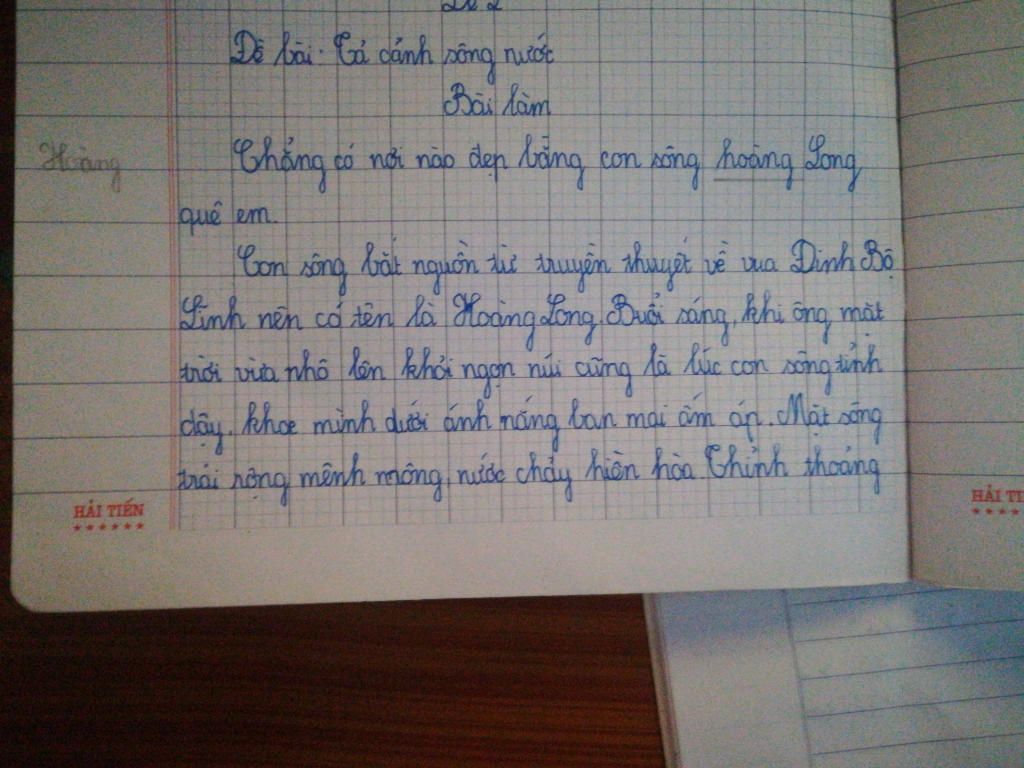 Đề 2
Đề bài: Tả cảnh sông nước
Bài làm
Hoàng
Chẳng có nơi nào đẹp bằng con sông hoàng Long
quê em.
Con sông bắt nguồn từ truyền thuyết về vua Đinh Bộ
Lĩnh nên có tên là Hoàng Long. Buổi sáng, khi ông mặt
trời vừa nhô lên khỏi ngọn núi cũng là lúc con sông tỉnh
dậy, khoe mình dưới ánh nắng ban mai ấm áp. Mặt sông
trải rộng mênh mông, nước chảy hiền hòa. Thỉnh thoảng
HẢI TIẾN
HẢI TI